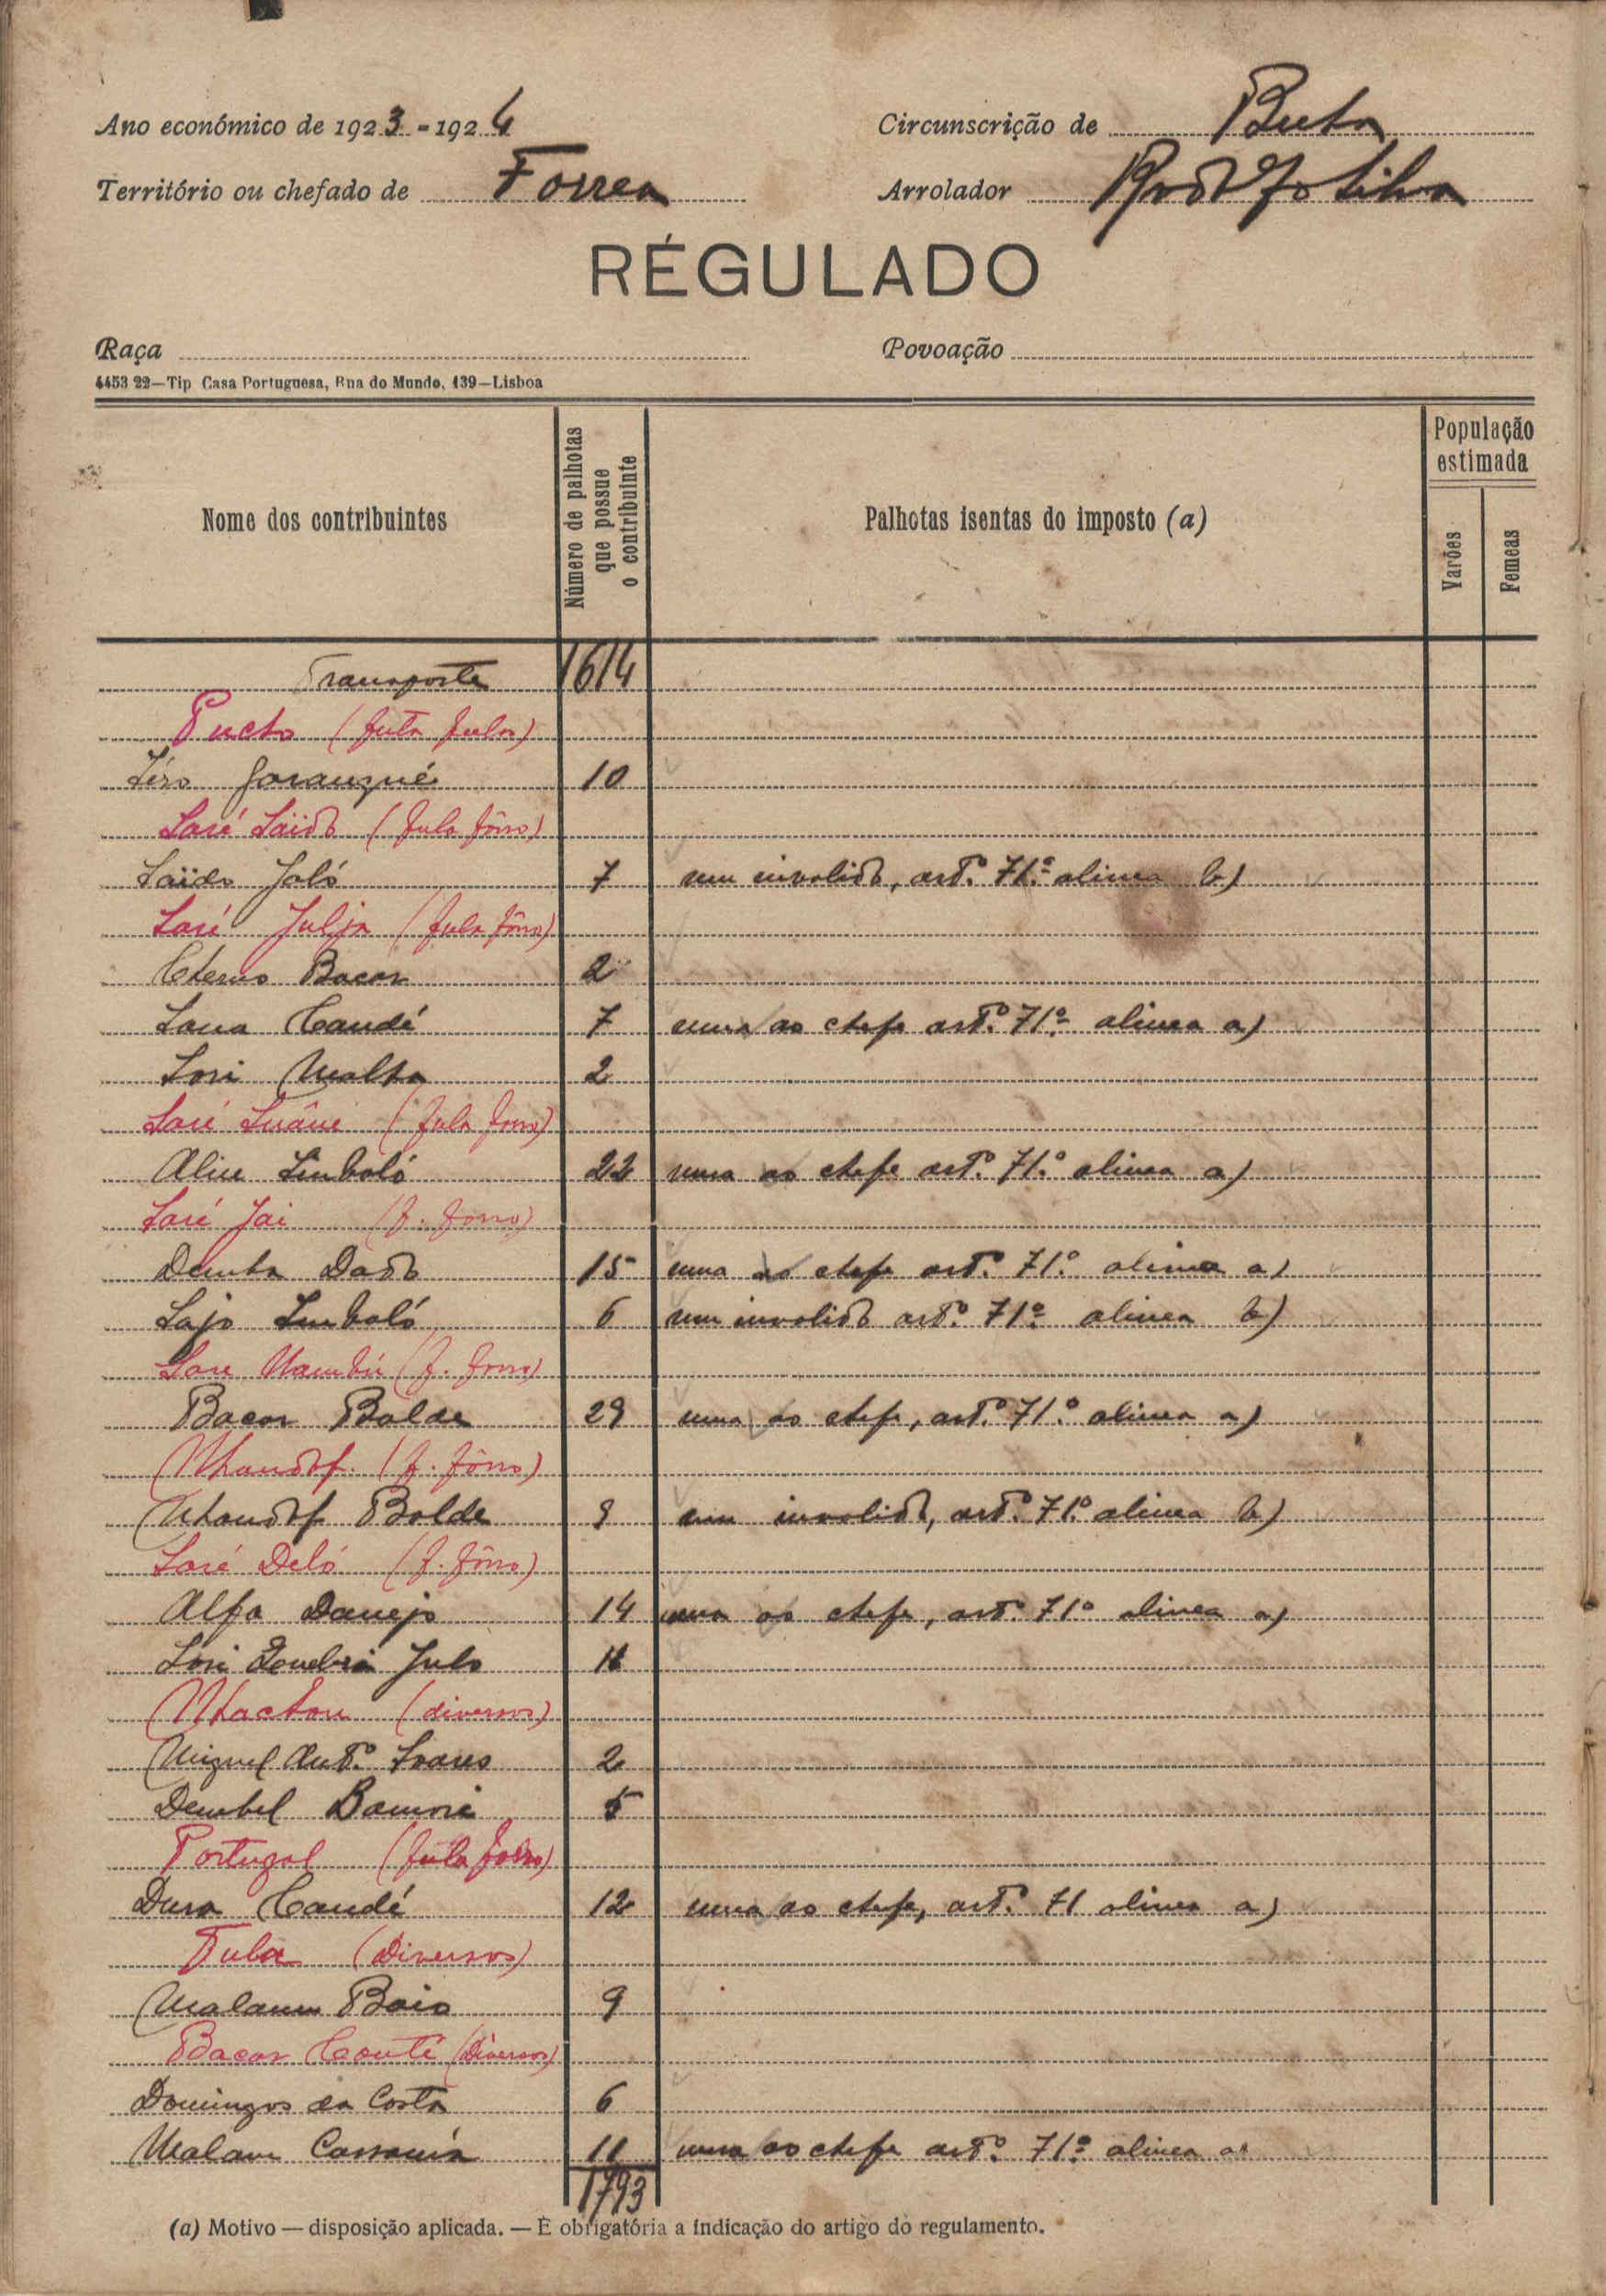 Ano económico de 1923-1924
Circunscrição de Buba
Território ou chefado de Forrea
Arrolador Rodolfo Silva
RÉGULADO
Raça
Povoação
4453 22—Tip Casa Portuguesa, Rua do Mundo, 139—Lisboa
Nome dos contribuintes
Número de palhotas que possue o contribuinte
Palhotas isentas do imposto (a)
População estimada
Varões
Femeas
Transporte 1614
(futa fula)
10
Saré Saido (fula fôrro)
Saido Jaló 7 um invalido, artº. 71.º alinea b)
Saré Julja (fula fôrro)
Bacar 2
Sana Candé 7 uma ao chefe artº. 71º alinea a)
Sori 2
Saré (fula forro)
Aliu Embaló 22 uma ao chefe artº. 71.º alinea a)
Saré Jai (f. forro)
Demba Dado 15 uma ao chefe artº. 71.º alinea a)
Sajo Embaló 6 um invalido artº. 71º alinea b)
Saré (f. forro)
Bacar Balde 29 uma ao chefe, artº. 71.º alinea a)
(f. fôrro)
Balde 9 um invalido, artº. 71º alinea b)
Saré Deló (f. fôrro)
Alfa Danejo 14 uma ao chefe, artº. 71º alinea a)
Sori 11
(diversos)
Miguel Antº. Soares 2
Dembel 5
Portugal (fula forro)
Dura Candé 12 uma ao chefe, artº. 71 alinea a)
Tuba (Diversos)
Malam Baio 9
Bacar Conté (Diversos)
Domingos da Costa 6
Malam Cassamá 11 uma ao chefe artº. 71º alinea a)
1793
(a) Motivo — disposição aplicada. — É obrigatória a indicação do artigo do regulamento.